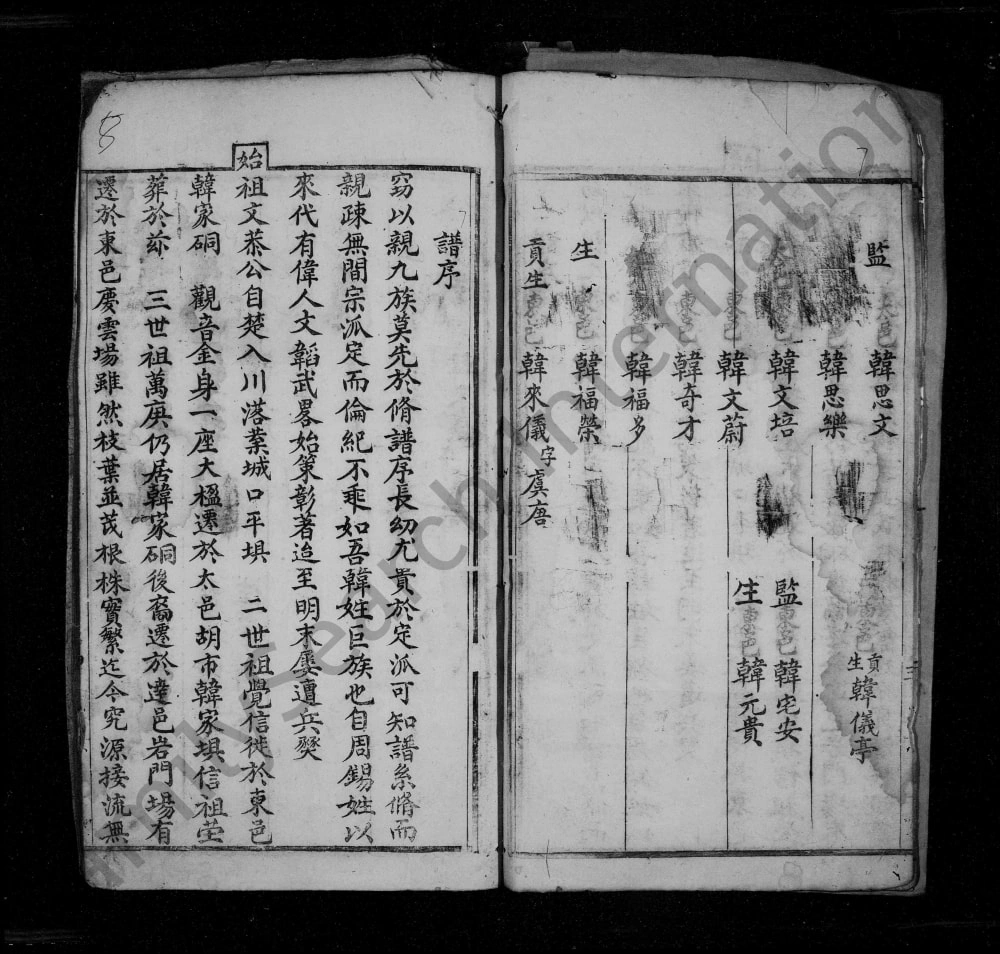 7
監 太邑 韓思文
貢生 韓儀亭
韓思樂
韓文培
監 東邑 韓宅安
東邑 韓文蔚
生 東邑 韓元貴
東邑 韓奇才
韓福多
生 東邑 韓福榮
貢生 東邑 韓來儀 字虞唐
8
譜序
窈以親九族莫先於脩譜序長幼尤貴於定派可知譜系脩而
親疎無間宗派定而倫紀不乖如吾韓姓巨族也自周錫姓以
來代有偉人文韜武畧始策彰著迨至明末屡遭兵燹
始
祖文恭公自楚入川落業城口平埧 二世祖覺信徙於東邑
韓家硐 觀音金身一座大楹遷於太邑胡市韓家埧信祖塋
葬於茲 三世祖萬庚仍居韓家硐後裔遷於達邑岩門場有
遷於東邑慶雲場雖然枝葉並茂根株實繁迄今究源接流無
FamilySearch International